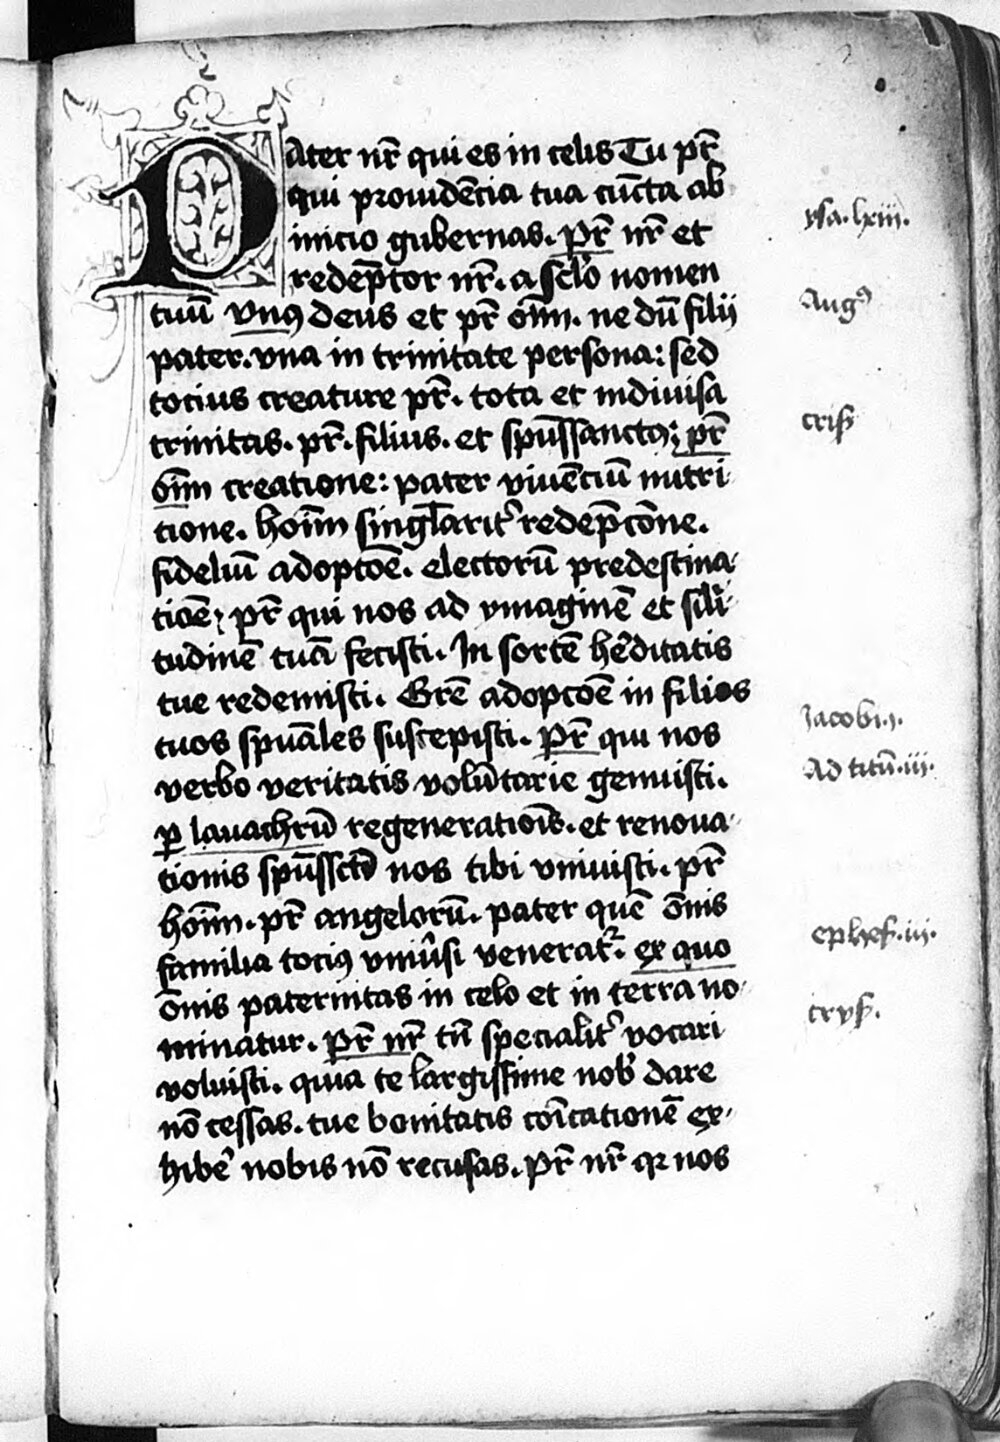 Pater nr̄ qui es in celis Tu pr̄
qui prouidēcia tua cūcta ab
inicio gubernas. Pr̄ nr̄ et
redēptor nr̄. a sclo nomen
tuū vnꝰ deus et pr̄ oīm. ne dū filij
pater. vna in trinitate persona: sed
tocius creature pr̄. tota et indiuisa
trinitas. pr̄. filius. et spūssanctꝰ: pr̄
oīm creatione: pater viuēciū nutri-
tione. hoīm singlarit̉ redēpcōne.
fideliū adopcōe. electorū predestina-
tiōe: pr̄ qui nos ad ymaginē et sili-
tudinē tuā fecisti. In sortē hēditatis
tue redemisti. Grē adopcōe in filios
tuos spūales suscepisti. Pr̄ qui nos
verbo veritatis volūtarie genuisti.
ꝑ lauachrū regeneratiōis. et renoua-
tionis spūssctī nos tibi vniuisti. pr̄
hoīm. pr̄ angelorū. pater quē oīnis
familia tociꝰ vniūsi venerat᷑. ex quo
oīnis paternitas in celo et in terra no-
minatur. Pr̄ nr̄ tn̄ specialit̉ vocari
voluisti. quia te largissime nob̉ dare
nō cessas. tue bonitatis cōicationē ex-
hibẻ nobis nō recusas. Pr̄ nr̄ qꝛ nos
ysa. lxiii.
Augꝰ
cris
Jacobi .i.
Ad titū .iii.
ephes. iii.
crys.